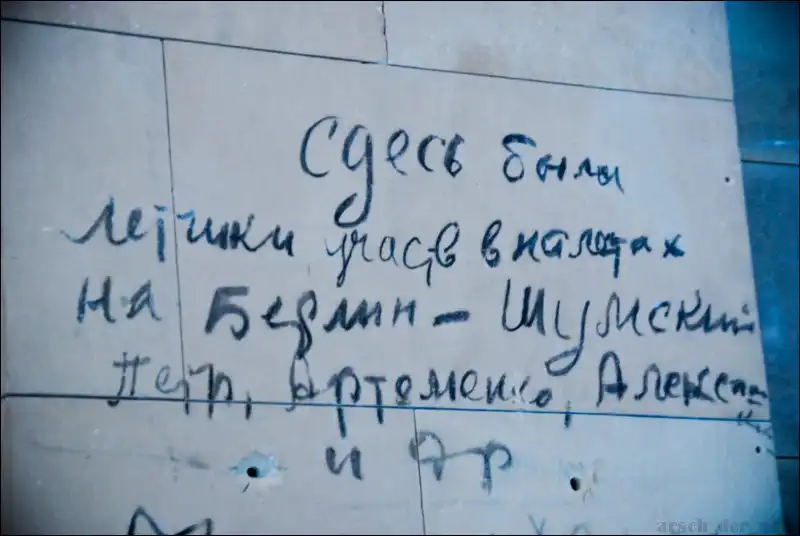 Сдесь были
летчики участв в налетах
на Берлин - Шумский
Петр, Артеменко, Алексан
и др
arsch_der